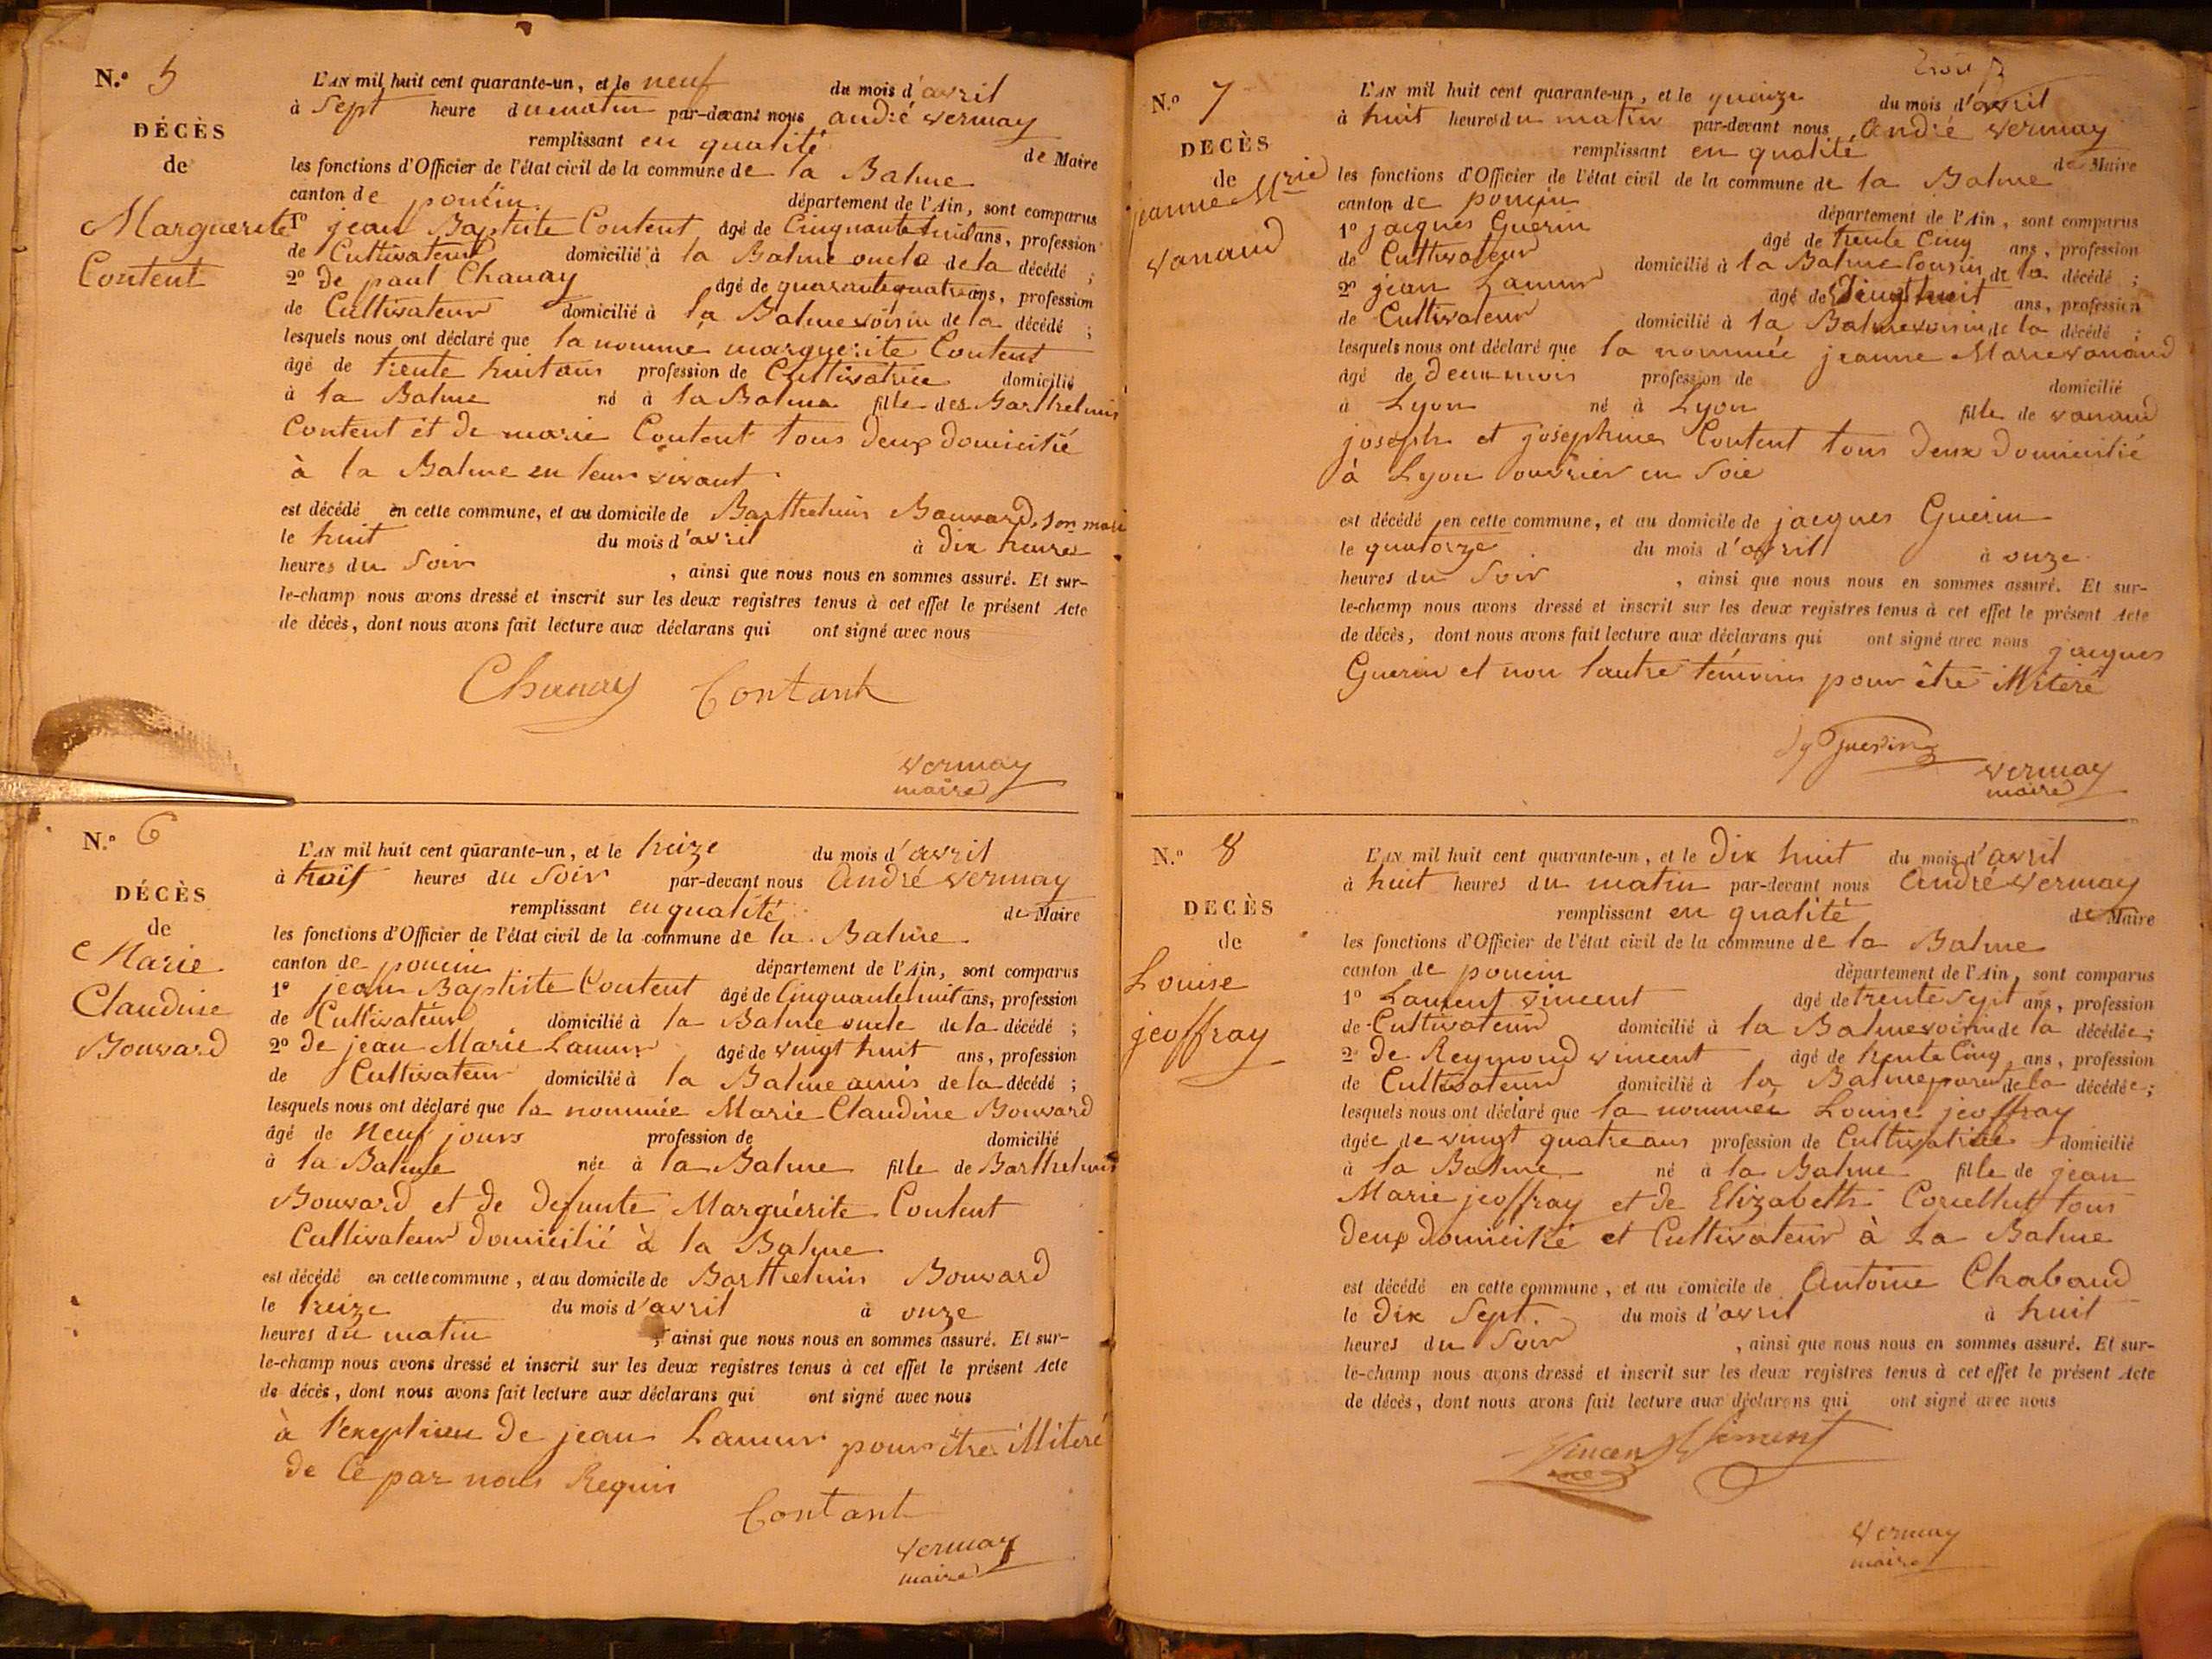 N.º 5
DÉCÈS
de
Marguerite
Content
L'AN mil huit cent quarante-un, et le neuf du mois d'avril
à sept heure du matin par-devant nous andré vermay
remplissant en qualité de Maire
les fonctions d'Officier de l'état civil de la commune de la Balme
canton de poncin département de l'Ain, sont comparus
1º jean Baptiste Content âgé de Cinquante huit ans, profession
de Cultivateur domicilié à la Balme oncle de la décédé ;
2º de paul Chanay âgé de quarante quatre ans, profession
de Cultivateur domicilié à la Balme voisin de la décédé ;
lesquels nous ont déclaré que la nommé marguerite Content
âgé de trente huit ans profession de Cultivatrice domicilié
à la Balme né à la Balme fille des Barthelmis
Content et de marie Content tous deux domicilié
à la Balme en leur vivant
est décédé en cette commune, et au domicile de Barthelmis Bouvard, son mari
le huit du mois d'avril à dix heures
heures du Soir , ainsi que nous nous en sommes assuré. Et sur-
le-champ nous avons dressé et inscrit sur les deux registres tenus à cet effet le présent Acte
de décès, dont nous avons fait lecture aux déclarans qui ont signé avec nous
Chanay Contant
vermay
maire
N.º 6
DÉCÈS
de
Marie
Claudine
Bouvard
L'AN mil huit cent quarante-un, et le treize du mois d'avril
à trois heures du Soir par-devant nous André vermay
remplissant en qualité de Maire
les fonctions d'Officier de l'état civil de la commune de la Balme
canton de poncin département de l'Ain, sont comparus
1º jean Baptiste Content âgé de Cinquante huit ans, profession
de Cultivateur domicilié à la Balme oncle de la décédé ;
2º de jean Marie Lamur âgé de vingt huit ans, profession
de Cultivateur domicilié à la Balme amis de la décédé ;
lesquels nous ont déclaré que la nommée Marie Claudine Bouvard
âgé de Neuf jours profession de domicilié
à la Balme née à la Balme fille de Barthelmis
Bouvard et de defunte Marguérite Content
Cultivateur domicilié à la Balme
est décédé en cette commune, et au domicile de Barthelmis Bouvard
le treize du mois d'avril à onze
heures du matin , ainsi que nous nous en sommes assuré. Et sur-
le-champ nous avons dressé et inscrit sur les deux registres tenus à cet effet le présent Acte
de décès, dont nous avons fait lecture aux déclarans qui ont signé avec nous
à l'exeption de jean Lamur pour être illiteré
de Ce par nous Requis
Contant
vermay
maire
N.º 7
DÉCÈS
de
jeanne Mrie
vanaud
L'AN mil huit cent quarante-un, et le quinze du mois d'avril
à huit heures du matin par-devant nous André vermay
remplissant en qualité de Maire
les fonctions d'Officier de l'état civil de la commune de la Balme
canton de poncin département de l'Ain, sont comparus
1º jacques Guerin âgé de trente Cinq ans, profession
de Cultivateur domicilié à la Balme Cousin de la décédé ;
2º jean Lamur âgé de Vingt huit ans, profession
de Cultivateur domicilié à la Balme voisin de la décédé ;
lesquels nous ont déclaré que la nommée jeanne Marie vanaud
âgé de deux mois profession de domicilié
à Lyon né à Lyon fille de vanaud
joseph et josephine Content tous deux domicilié
à Lyon ouvrier en Soie
est décédé en cette commune, et au domicile de jacques Guerin
le quatorze du mois d'avril à onze
heures du Soir , ainsi que nous nous en sommes assuré. Et sur-
le-champ nous avons dressé et inscrit sur les deux registres tenus à cet effet le présent Acte
de décès, dont nous avons fait lecture aux déclarans qui ont signé avec nous jacques
Guerin et non l'autre témoins pour être illiteré
Guerin
vermay
maire
N.º 8
DÉCÈS
de
Louise
jeoffray
L'AN mil huit cent quarante-un, et le Dix huit du mois d'avril
à huit heures du matin par-devant nous André vermay
remplissant en qualité de Maire
les fonctions d'Officier de l'état civil de la commune de la Balme
canton de poncin département de l'Ain, sont comparus
1º Laurent vincent âgé de trente Sept ans, profession
de Cultivateur domicilié à la Balme voisin de la décédée ;
2º de Reymond vincent âgé de trente Cinq ans, profession
de Cultivateur domicilié à la Balme paren de la décédée ;
lesquels nous ont déclaré que la nommée Louise jeoffray
âgée de vingt quatre ans profession de Cultivatrice domicilié
à la Balme né à la Balme fille de jean
Marie jeoffray et de Elizabeth Corcellut tous
deux domicilié et Cultivateur à La Balme
est décédé en cette commune, et au domicile de Antoine Chabaud
le Dix Sept du mois d'avril à huit
heures du Soir , ainsi que nous nous en sommes assuré. Et sur-
le-champ nous avons dressé et inscrit sur les deux registres tenus à cet effet le présent Acte
de décès, dont nous avons fait lecture aux déclarans qui ont signé avec nous
vermay
maire